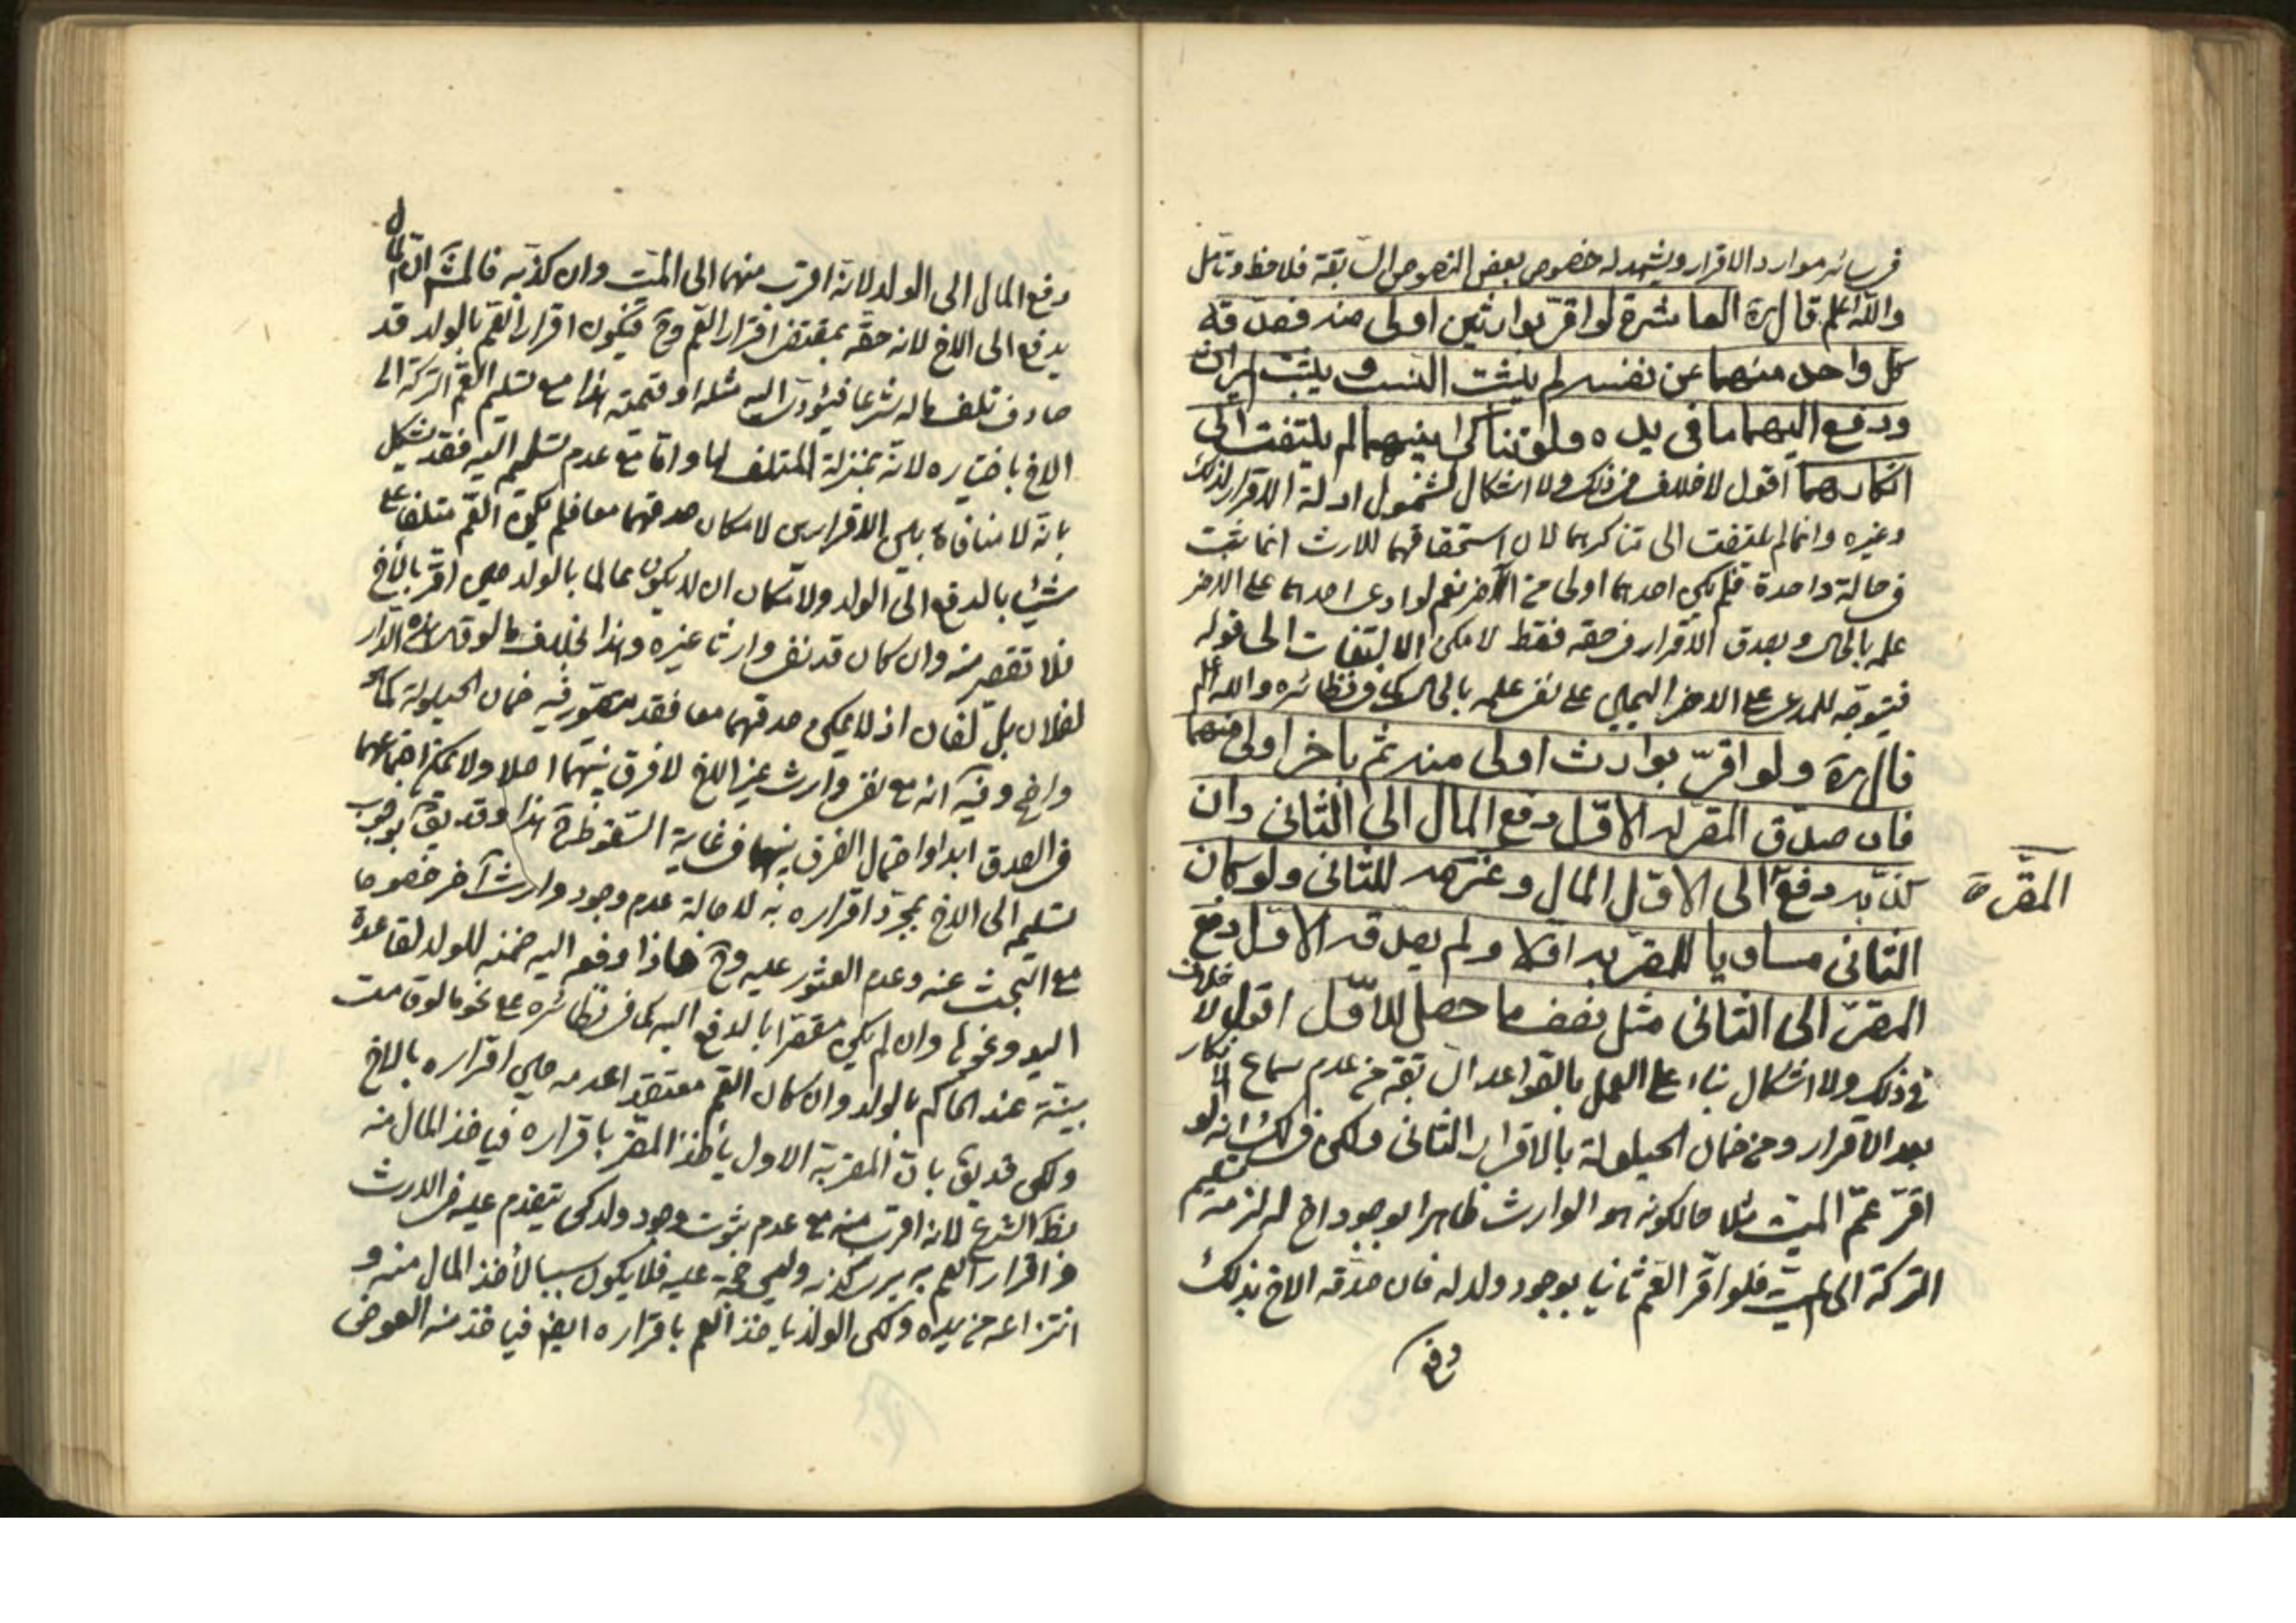 في سائر موارد الاقرار ويشهد له خصوص بعض النصوص السابقة فلاحظ وتأمل
والله اعلم قال ره العاشرة لو اقر بوارثين اولى منه فصدقه
كل واحد منهما عن نفسه لم يثبت النسب ويثبت الميراث
ودفع اليهما ما في يده ولو تناكرا بينهما لم يلتفت الى
انكارهما اقول لا خلاف في ذلك ولا اشكال لشمول ادلة الاقرار لذلك
وغيره وانما لم يلتفت الى تناكرهما لان استحقاقهما للارث انما ثبت
في حالة واحدة فلم يكن احدهما اولى من الآخر نعم لو ادعى احدهما على الاخر
علمه بالحال وبصدق الاقرار في حقه فقط لامكن الالتفات الى قوله
فيتوجه للمدعى على الاخر اليمين على نفي علمه بالحال كما في نظائره والله اعلم
قال ره ولو اقرّ بوارث اولى منه ثم باخر اولى منهما
فان صدّق المقر له الاوّل دفع المال الى الثاني وان
كذّبه دفع الى الاوّل المال وغرمه للثاني ولو كان
المقر ة
الثاني مساويا للمقرّ به اوّلا ولم يصدقه الاوّل دفع
المقرّ الى الثاني مثل نصف ما حصل للاوّل اقول لا خلاف
في ذلك ولا اشكال بناء على العمل بالقواعد السابقة من عدم سماع الانكار
بعد الاقرار ومن ضمان الحيلولة بالاقرار الثاني ولكن في ذلك انه لو
اقرّ عمّ الميت مثلا مالكونه هو الوارث ظاهرا بوجود اخ له لزمه تسليم
التركة الى الميت فلو اقرّ العم ثانيا بوجود ولد له فان صدقه الاخ بذلك
دفع
دفع المال الى الولد لانه اقرب منهما الى الميت وان كذبه فالمش ان المال
يدفع الى الاخ لانه حقه بمقتضى اقرار العم وح فيكون اقرار العم بالولد قد
صادف تلف ماله شرعا فيؤدى اليه مثله او قيمته هذا مع تسليم العم التركة الى
الاخ باختياره لانه بمنزلة المتلف لها واما مع عدم تسليم اليه فقد يشكل
بانه لا منافاة بين الاقرارين لامكان صدقهما معا فلم يكن العم متلفا على
شيئا بالدفع الى الولد ولامكان ان لا يكون عالما بالولد حين اقر بالاخ
فلا تقصير منه وان كان قد نفى وارثا غيره وهذا بخلاف ما لو قال هذه الدار
لفلان بل لفلان اذ لا يمكن صدقهما معا فقد يتصور فيه ضمان الحيلولة كما هو
واضح وفيه انه مع نفي وارث غير الاخ لا فرق بينهما اصلا ولا يمكن اجتماعهما
في الصدق ابدا واحتمال الفرق بينهما في غاية السقوط هذا وقد يق بوجوب
تسليمه الى الاخ بمجرد اقراره به لاصالة عدم وجود وارث آخر خصوصا
مع البحث عنه وعدم العثور عليه وح فاذا دفع اليه ضمنه للولد لقاعدة
اليد ونحوها وان لم يكن مقصرا بالدفع اليه كما في نظائره على نحو ما لو قامت
بينة عند الحاكم بالولد وان كان العم معتقدا عدمه حين اقراره بالاخ
ولكن قد يق بان المقر به الاول يأخذ المقر باقراره فيأخذ المال منه
بظ الشرع لانه اقرب منه مع عدم ثبوت وجود ولد كي يتقدم عليه في الارث
و اقرار العم به يرى كذبه وليس حجة عليه فلا يكون سببا لأخذ المال منه و
انتزاعه من يده ولكن الولد يأخذ العم باقراره ايضا فيأخذ منه العوض